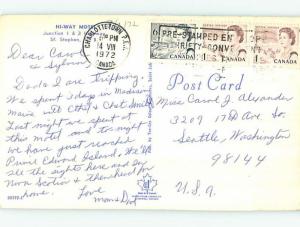 HI-WAY MOTEL
Junction 1 & 3
St. Stephen,
172
CHARLOTTETOWN P.E.I.
PM
14 VIII
1972
CANADA
PRE-STAMPED EN
THRIFTY-CONVE
6 CANADA
1 CANADA 1
Dear Carol
Dad & I are tripping.
We spent 3 days in Madison
Maine with & Chet
Last night we spent at
this motel and to-night
we have just reached
Prince Edward Island. We'll
see the sights here and
Nova Scotia & then head for
home. Love
Mom & Dad
Post Card
Miss Carol J. Alexander
3209 17th Ave So.
Seattle, Washington
98144
U.S.A.